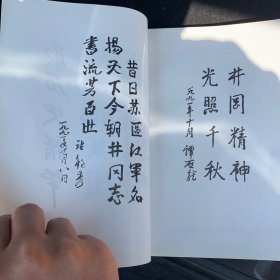 井冈精神
光照千秋
一九九一年十月
昔日苏区红军名
扬天下今朝井冈志
书流芳百世
一九九一年十月八日